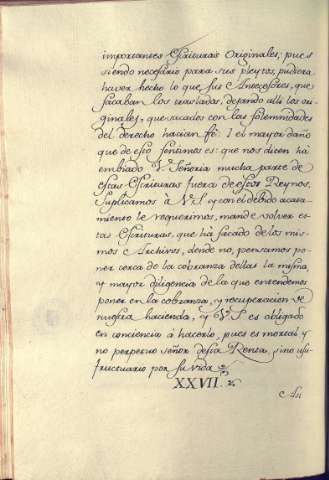 importantes Escrituras Originales, pues
siendo necesario para sus pleytos, pudiera
haver hecho lo que sus Antecesores, que
sacaban los traslados, dejando alli los ori-
ginales, que sacados con las solemnidades
del derecho hacian fè. I el mayor daño
que de esto sentimos es: que nos dicen há
embiado V. Señoria mucha parte de
estas Escrituras fuera de estos Reynos,
Suplicamos à V.S. y con el debido acata-
miento le requerimos, mande volver es-
tas Escrituras, que há sacado de los mis-
mos Archivos, donde no, pensamos po-
ner cerca de la cobranza dellas la misma
y mayor diligencia de la que entendemos
poner en la cobranza, y recuperacion de
nuestra hacienda, y V.S. es obligado
en conciencia à hacerlo, pues es mortal y
no perpetuo señor desta Renta, sino usu-
fructuario por su vida
XXVII.